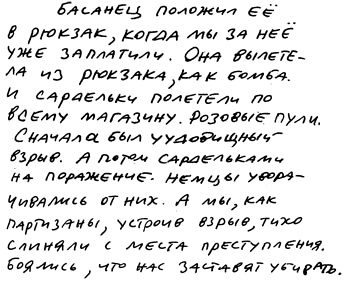 БАСАНЕЦ ПОЛОЖИЛ ЕЁ
В РЮКЗАК, КОГДА МЫ ЗА НЕЁ
УЖЕ ЗАПЛАТИЛИ. ОНА ВЫЛЕТЕ-
ЛА ИЗ РЮКЗАКА, КАК БОМБА.
И САРДЕЛЬКИ ПОЛЕТЕЛИ ПО
ВСЕМУ МАГАЗИНУ. РОЗОВЫЕ ПУЛИ.
СНАЧАЛА БЫЛ ЧУДОВИЩНЫЙ
ВЗРЫВ. А ПОТОМ САРДЕЛЬКАМИ
НА ПОРАЖЕНИЕ. НЕМЦЫ УВОРА-
ЧИВАЛИСЬ ОТ НИХ. А МЫ, КАК
ПАРТИЗАНЫ, УСТРОИВ ВЗРЫВ, ТИХО
СЛИНЯЛИ С МЕСТА ПРЕСТУПЛЕНИЯ.
БОЯЛИСЬ, ЧТО НАС ЗАСТАВЯТ УБИРАТЬ.